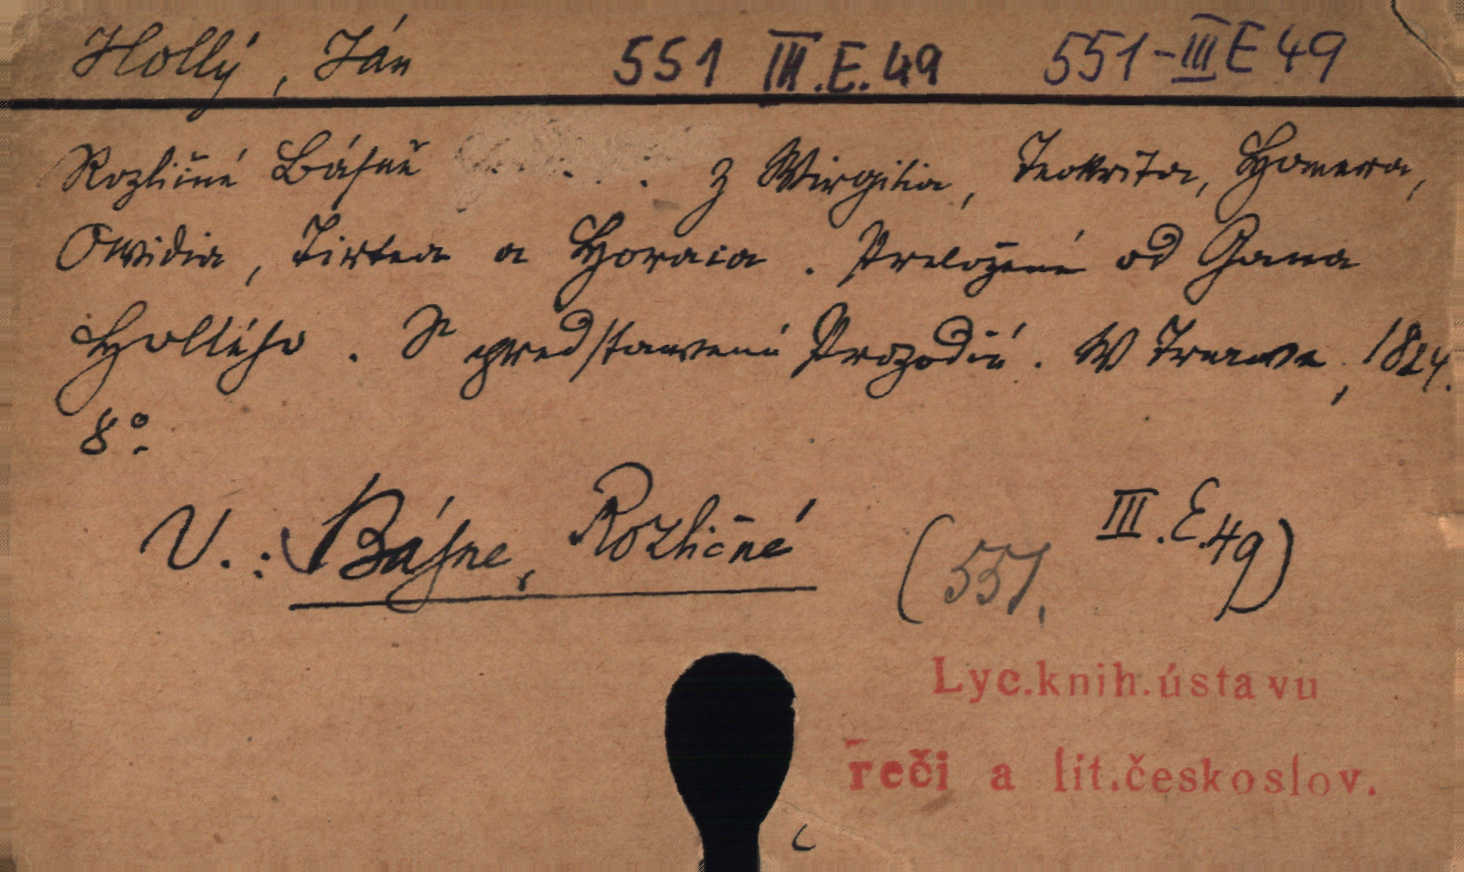 Hollý, Ján 551 III.E.49 551-III E 49
Rozličné Básně . . . . z Wirgilia, Teokrita, Homera,
Owidia, Tirtea a Horaca. Preložené od Gána
Hollého. S predstavení Prozodií. W Trnawe, 1824.
8°.
V.: Básne, Rozličné (551, III.E.49)
Lyc.knih.ústavu
reči a lit.českoslov.